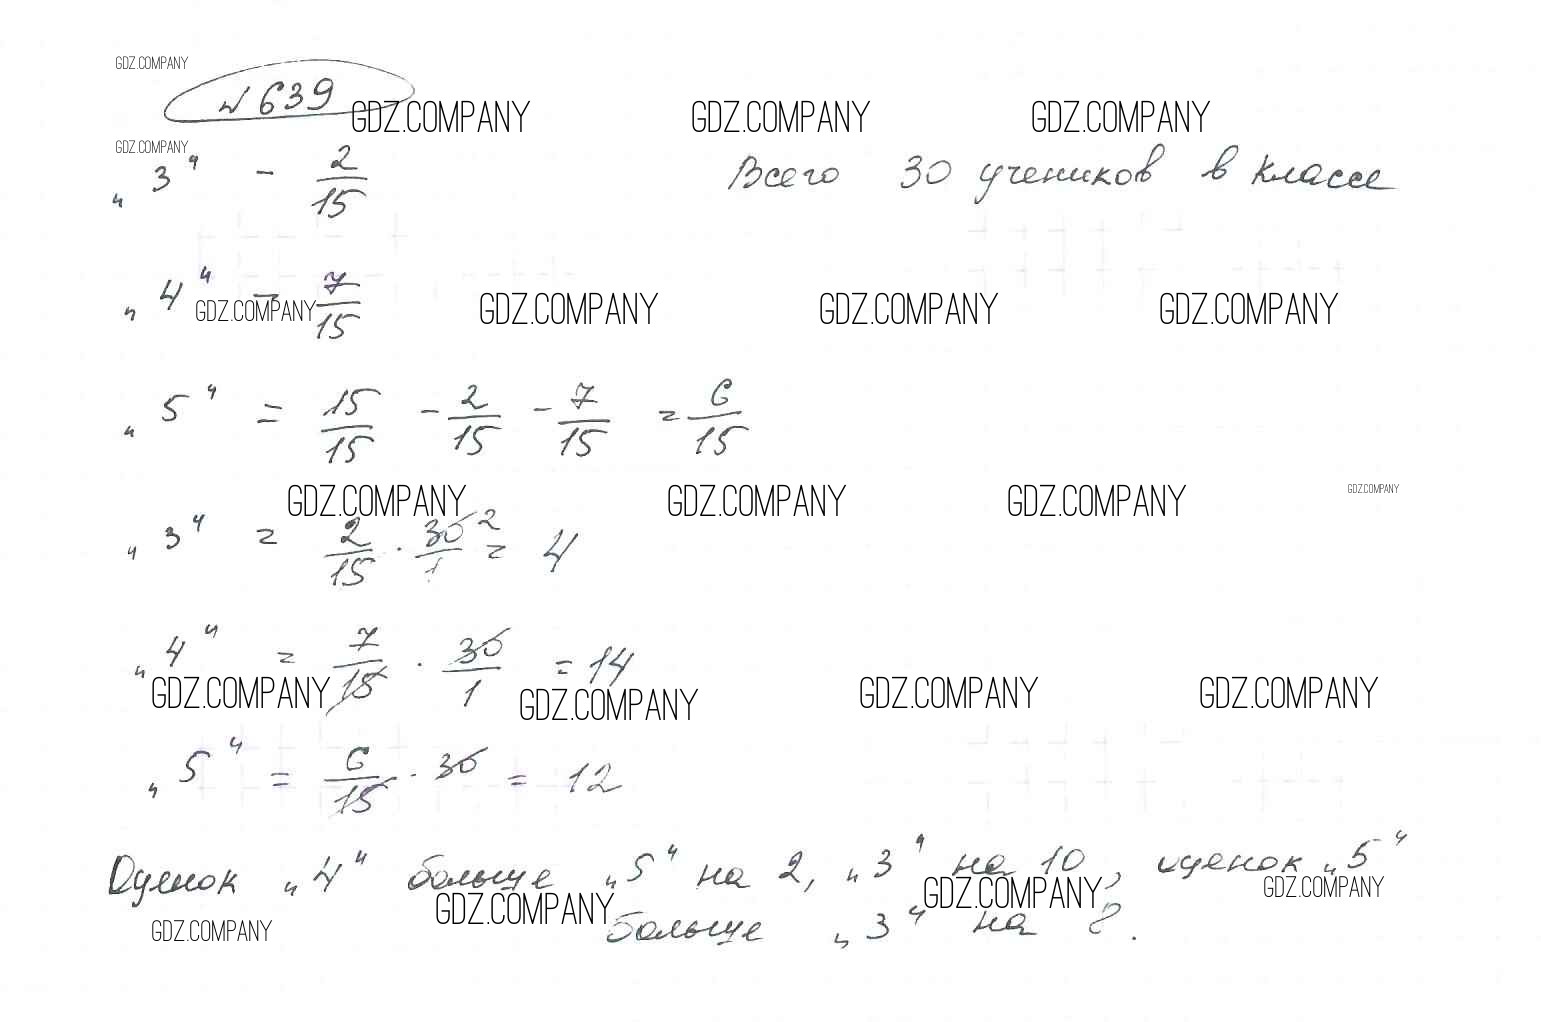 GDZ.COMPANY
№ 639
GDZ.COMPANY GDZ.COMPANY GDZ.COMPANY
GDZ.COMPANY
„3“ - 2/15 Всего 30 учеников в классе
„4“ - 7/15
GDZ.COMPANY GDZ.COMPANY GDZ.COMPANY GDZ.COMPANY
„5“ = 15/15 - 2/15 - 7/15 = 6/15
GDZ.COMPANY GDZ.COMPANY GDZ.COMPANY GDZ.COMPANY
„3“ = 2/15 · 30/1 2 = 4
„4“ = 7/15 · 30/1 = 14
GDZ.COMPANY GDZ.COMPANY GDZ.COMPANY GDZ.COMPANY
„5“ = 6/15 · 30 = 12
Оценок „4“ больше „5“ на 2, „3“ на 10, оценок „5“
GDZ.COMPANY GDZ.COMPANY GDZ.COMPANY
больше „3“ на 8.
GDZ.COMPANY